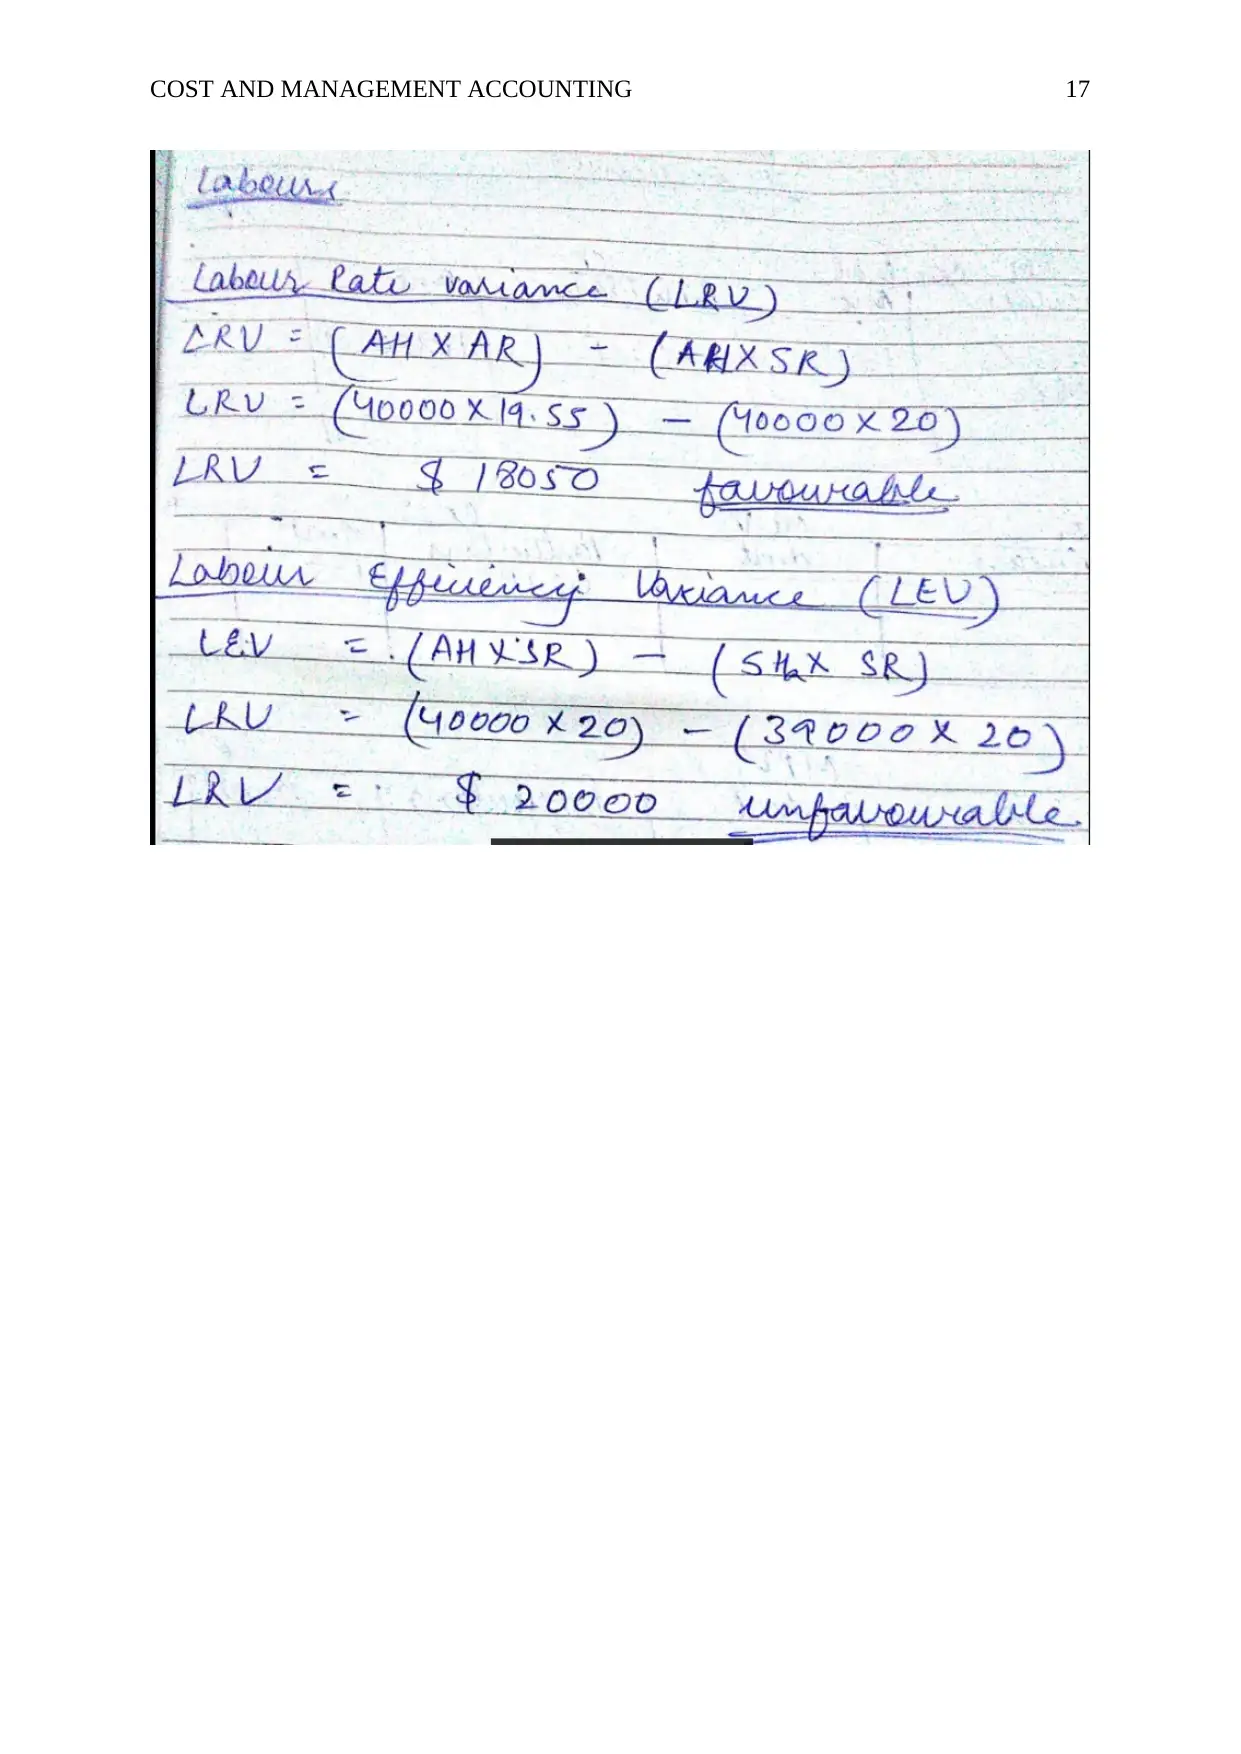 COST AND MANAGEMENT ACCOUNTING 17
Labour
Labour Rate variance (LRV)
LRV = (AH X AR) - (AH X SR)
LRV = (40000 X 19.55) - (40000 X 20)
LRV = $ 18050 favourable
Labour Efficiency Variance (LEV)
LEV = (AH X SR) - (SH X SR)
LRV = (40000 X 20) - (39000 X 20)
LRV = $ 20000 unfavourable